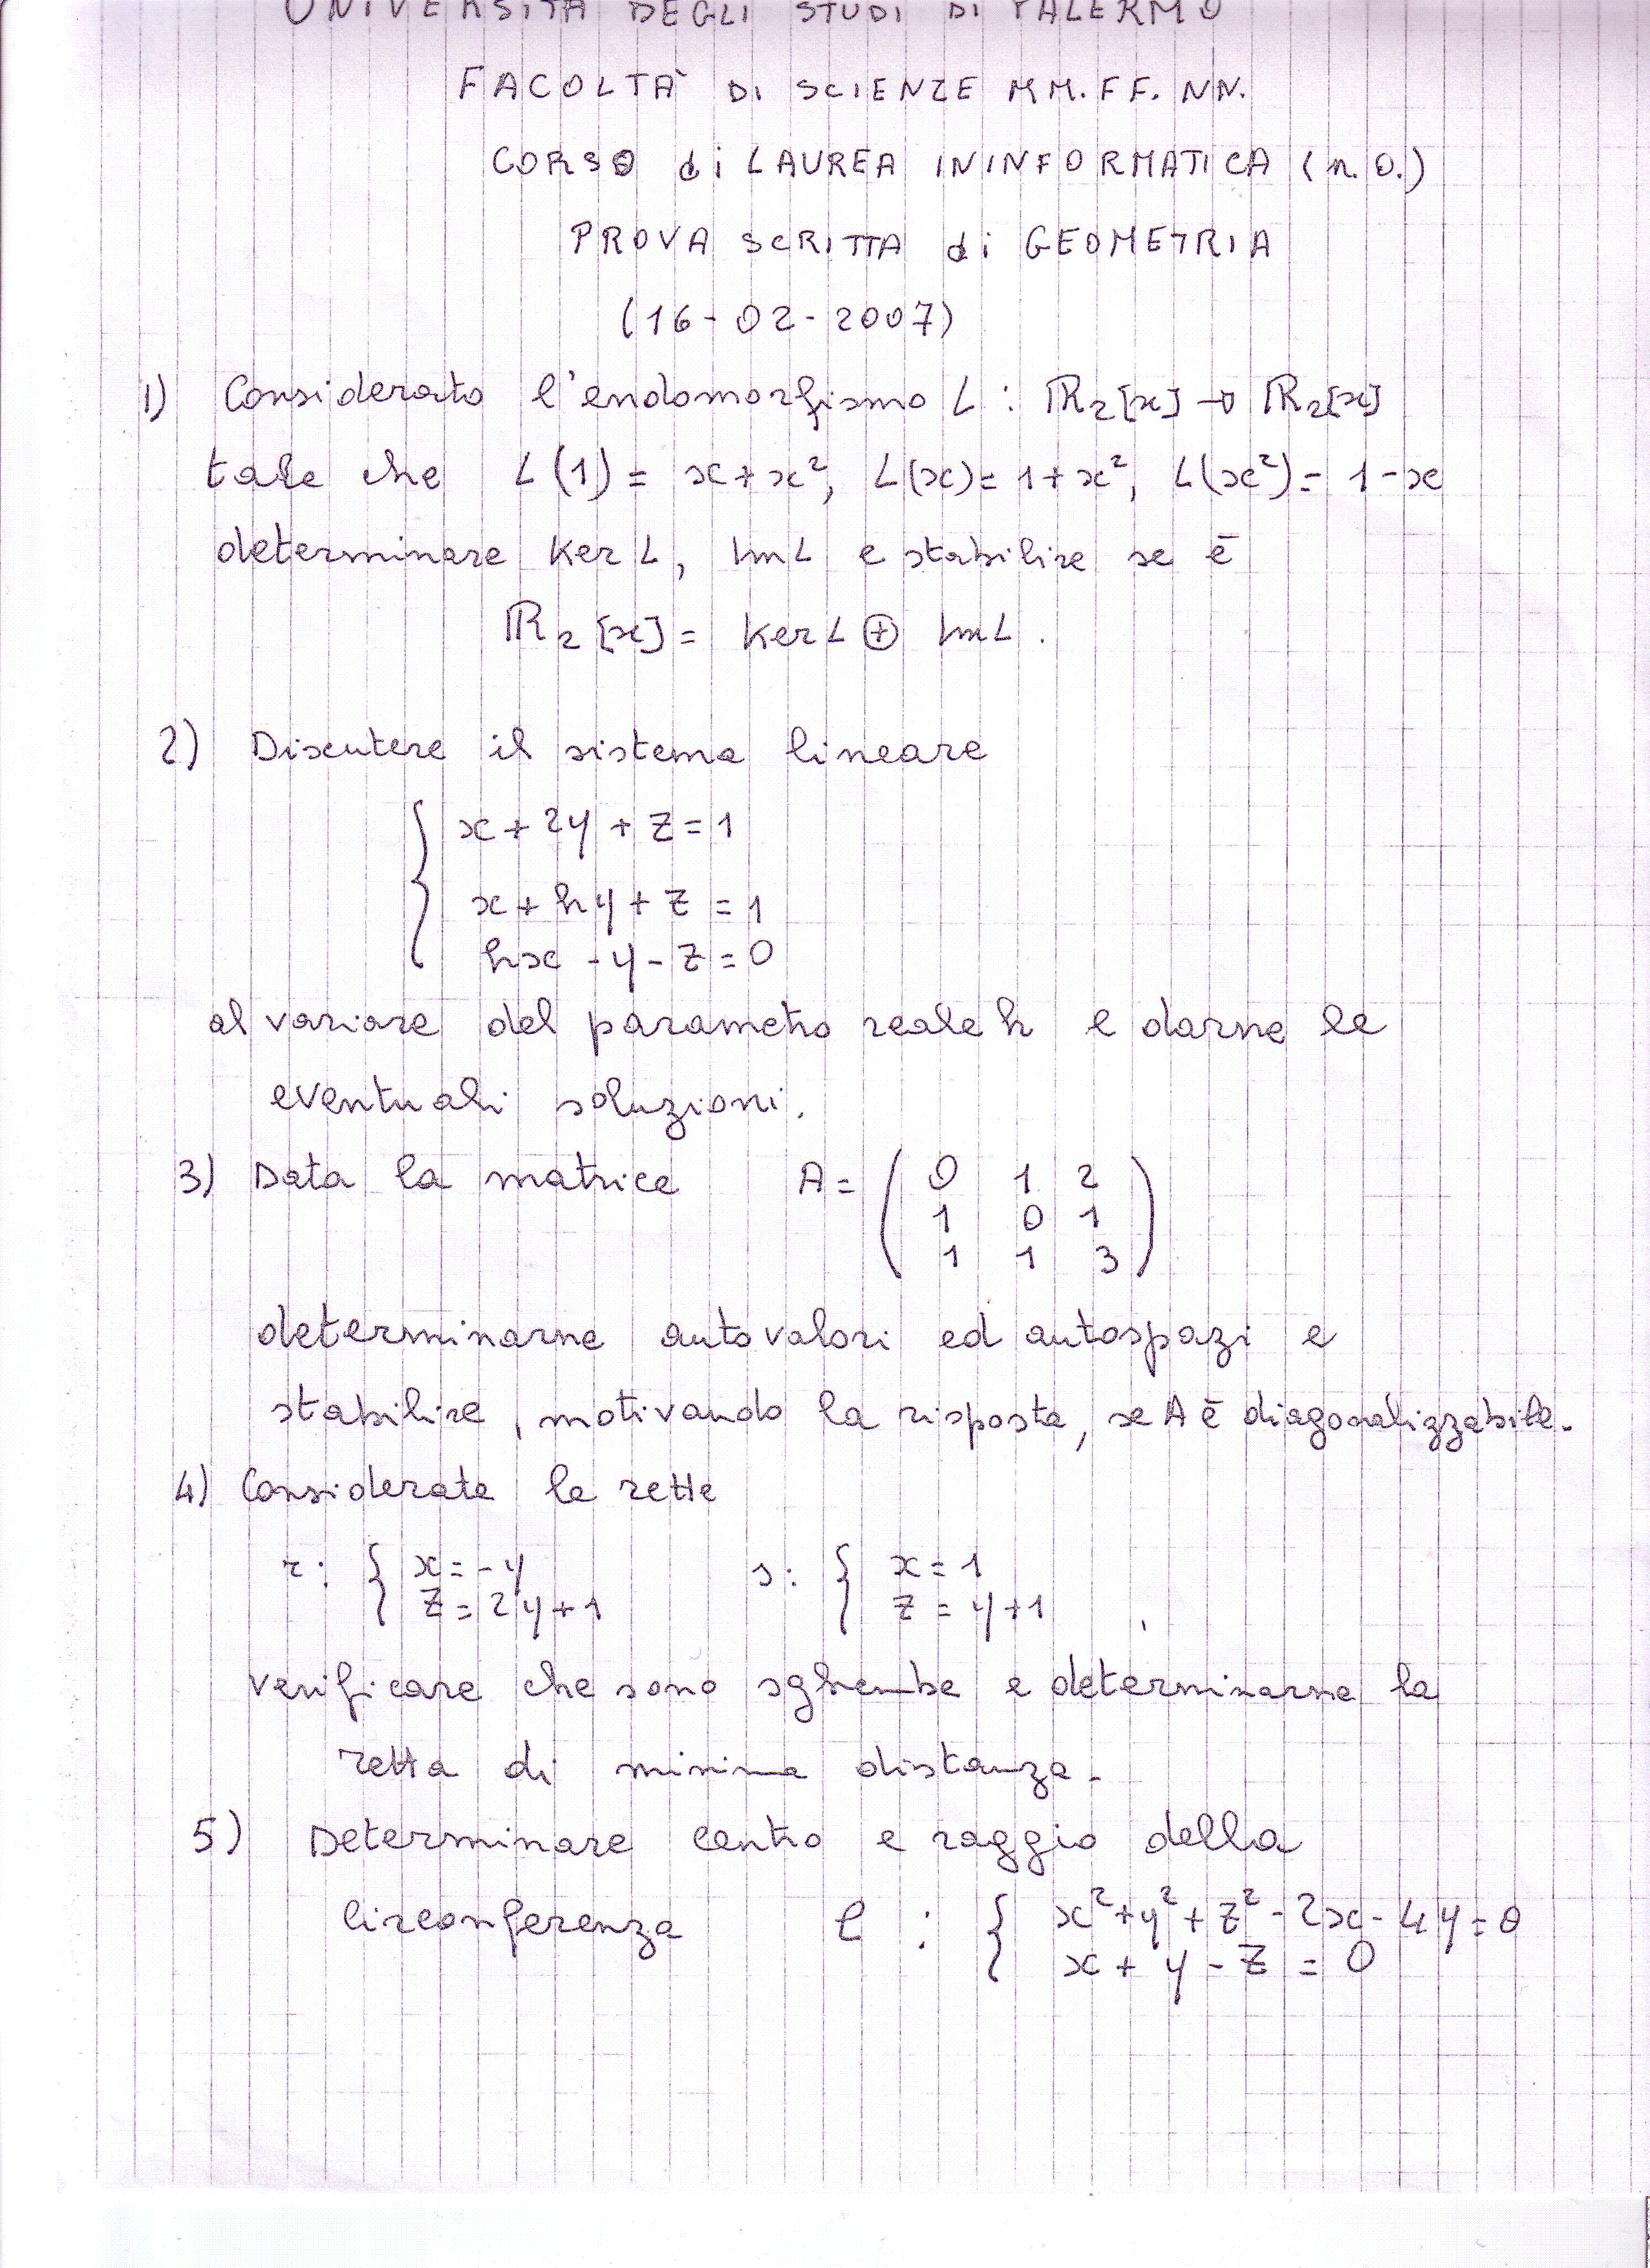 UNIVERSITÀ DEGLI STUDI DI PALERMO
FACOLTÀ DI SCIENZE MM.FF.NN.
CORSO di LAUREA IN INFORMATICA (n.o.)
PROVA SCRITTA di GEOMETRIA
(16-02-2007)
1) Considerato l'endomorfismo L : ℝ₂[x] → ℝ₂[x]
tale che L(1) = x+x², L(x)= 1+x², L(x²)= 1-x
determinare Ker L, Im L e stabilire se è
ℝ₂[x] = Ker L ⊕ Im L.
2) Discutere il sistema lineare
{ x + 2y + z = 1
x + hy + z = 1
hx - y - z = 0
al variare del parametro reale h e darne le
eventuali soluzioni.
3) Data la matrice A = ( 0 1 2
1 0 1
1 1 3 )
determinarne autovalori ed autospazi e
stabilire, motivando la risposta, se A è diagonalizzabile.
4) Considerate le rette
r: { x = -y s: { x = 1
z = 2y+1 z = y+1 ,
verificare che sono sghembe e determinarne la
retta di minima distanza.
5) Determinare centro e raggio della
circonferenza C : { x²+y²+z²-2x-4y=0
x + y - z = 0